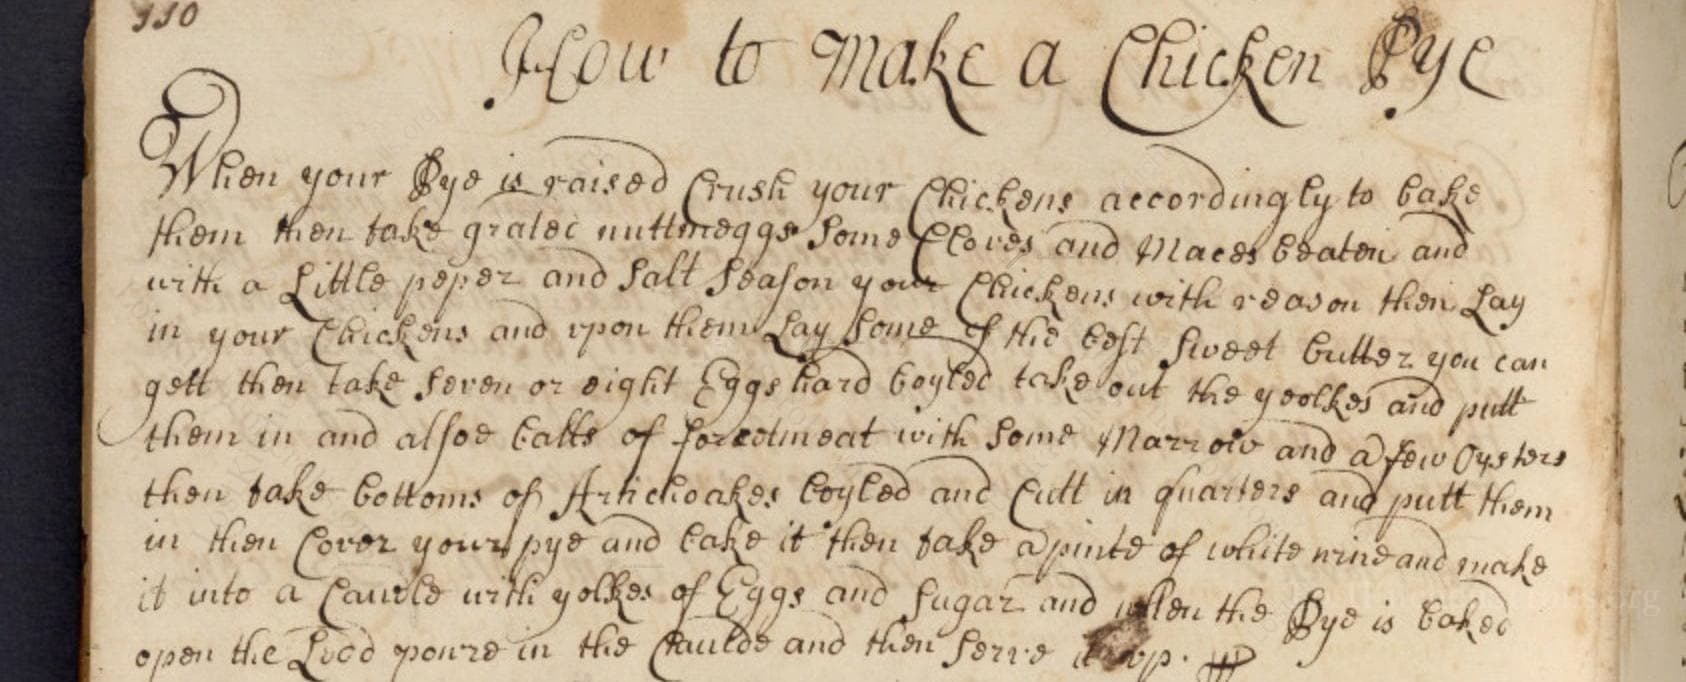 110
How to Make a Chicken Pye
When your Pye is raised Crush your Chickens accordingly to bake
them then take grated nuttmeggs some Cloves and Maces beaten and
with a Little peper and salt season your Chickens with reason then Lay
in your Chickens and upon them Lay some of the best sweet butter you can
gett then take seven or eight Eggs hard boyled take out the yeolkes and putt
them in and alsoe balls of forcedmeat with some Marrow and a few Oysters
then take bottoms of Artichoakes boyled and Cutt in quarters and putt them
in then Cover your pye and bake it then take a pinte of white wine and make
it into a Caudle with yolkes of Eggs and sugar and when the Pye is baked
open the Lidd poure in the Caulde and then serve it up.